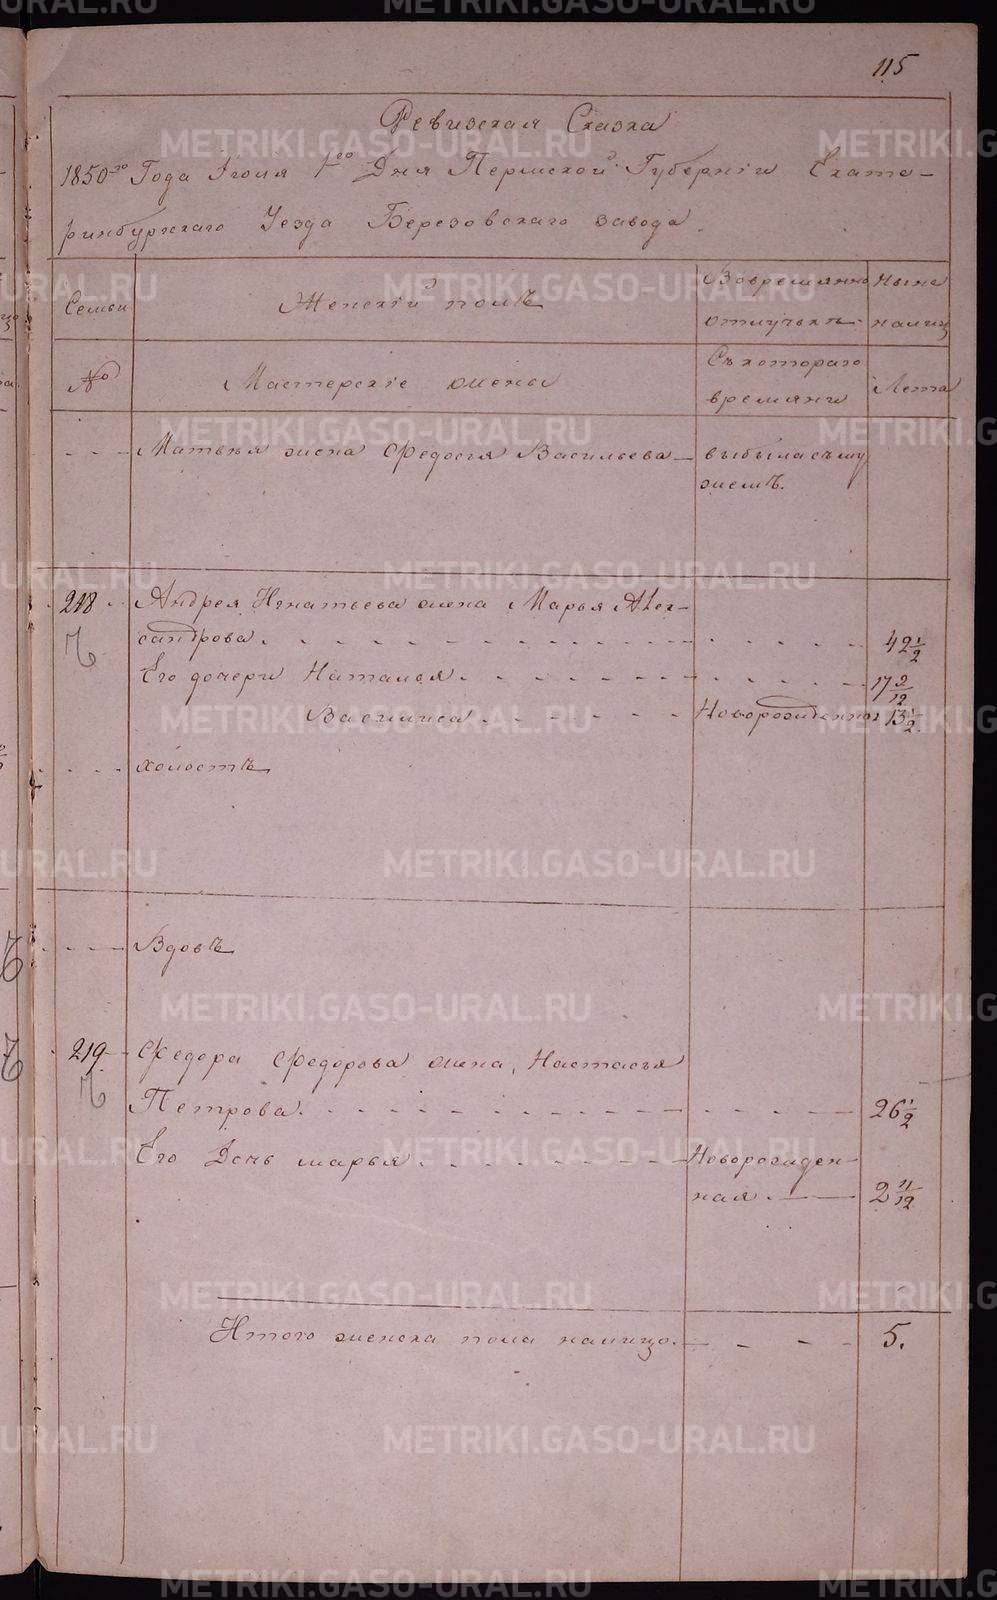 115
Ревизская Сказка
1850го Года Iюля 1го Дня Пермской Губернiи Екате-
ринбургскаго Уезда Березовскаго завода.
Семьи Женскiй полъ Вовремянно отлучкъ Ныне налиц
№ Мастерскiе жены Съкотораго времяни Лета
Матвея жена Федосья Васильева выбыласъму
жемъ.
218 Андрея Игнатьева жена Марья Алек-
сандрова. 42 1/2
Его дочери Наталья 17 9/12
Василиса Новорожденная 13 1/2
холостъ
Вдовъ
219 Федора Федорова жена, Настасья
Петрова. 26 1/2
Его Дочь марья Новорожден-
ная 2 11/12
Итого женска пола налицо. 5.
METRIKI.GASO-URAL.RU